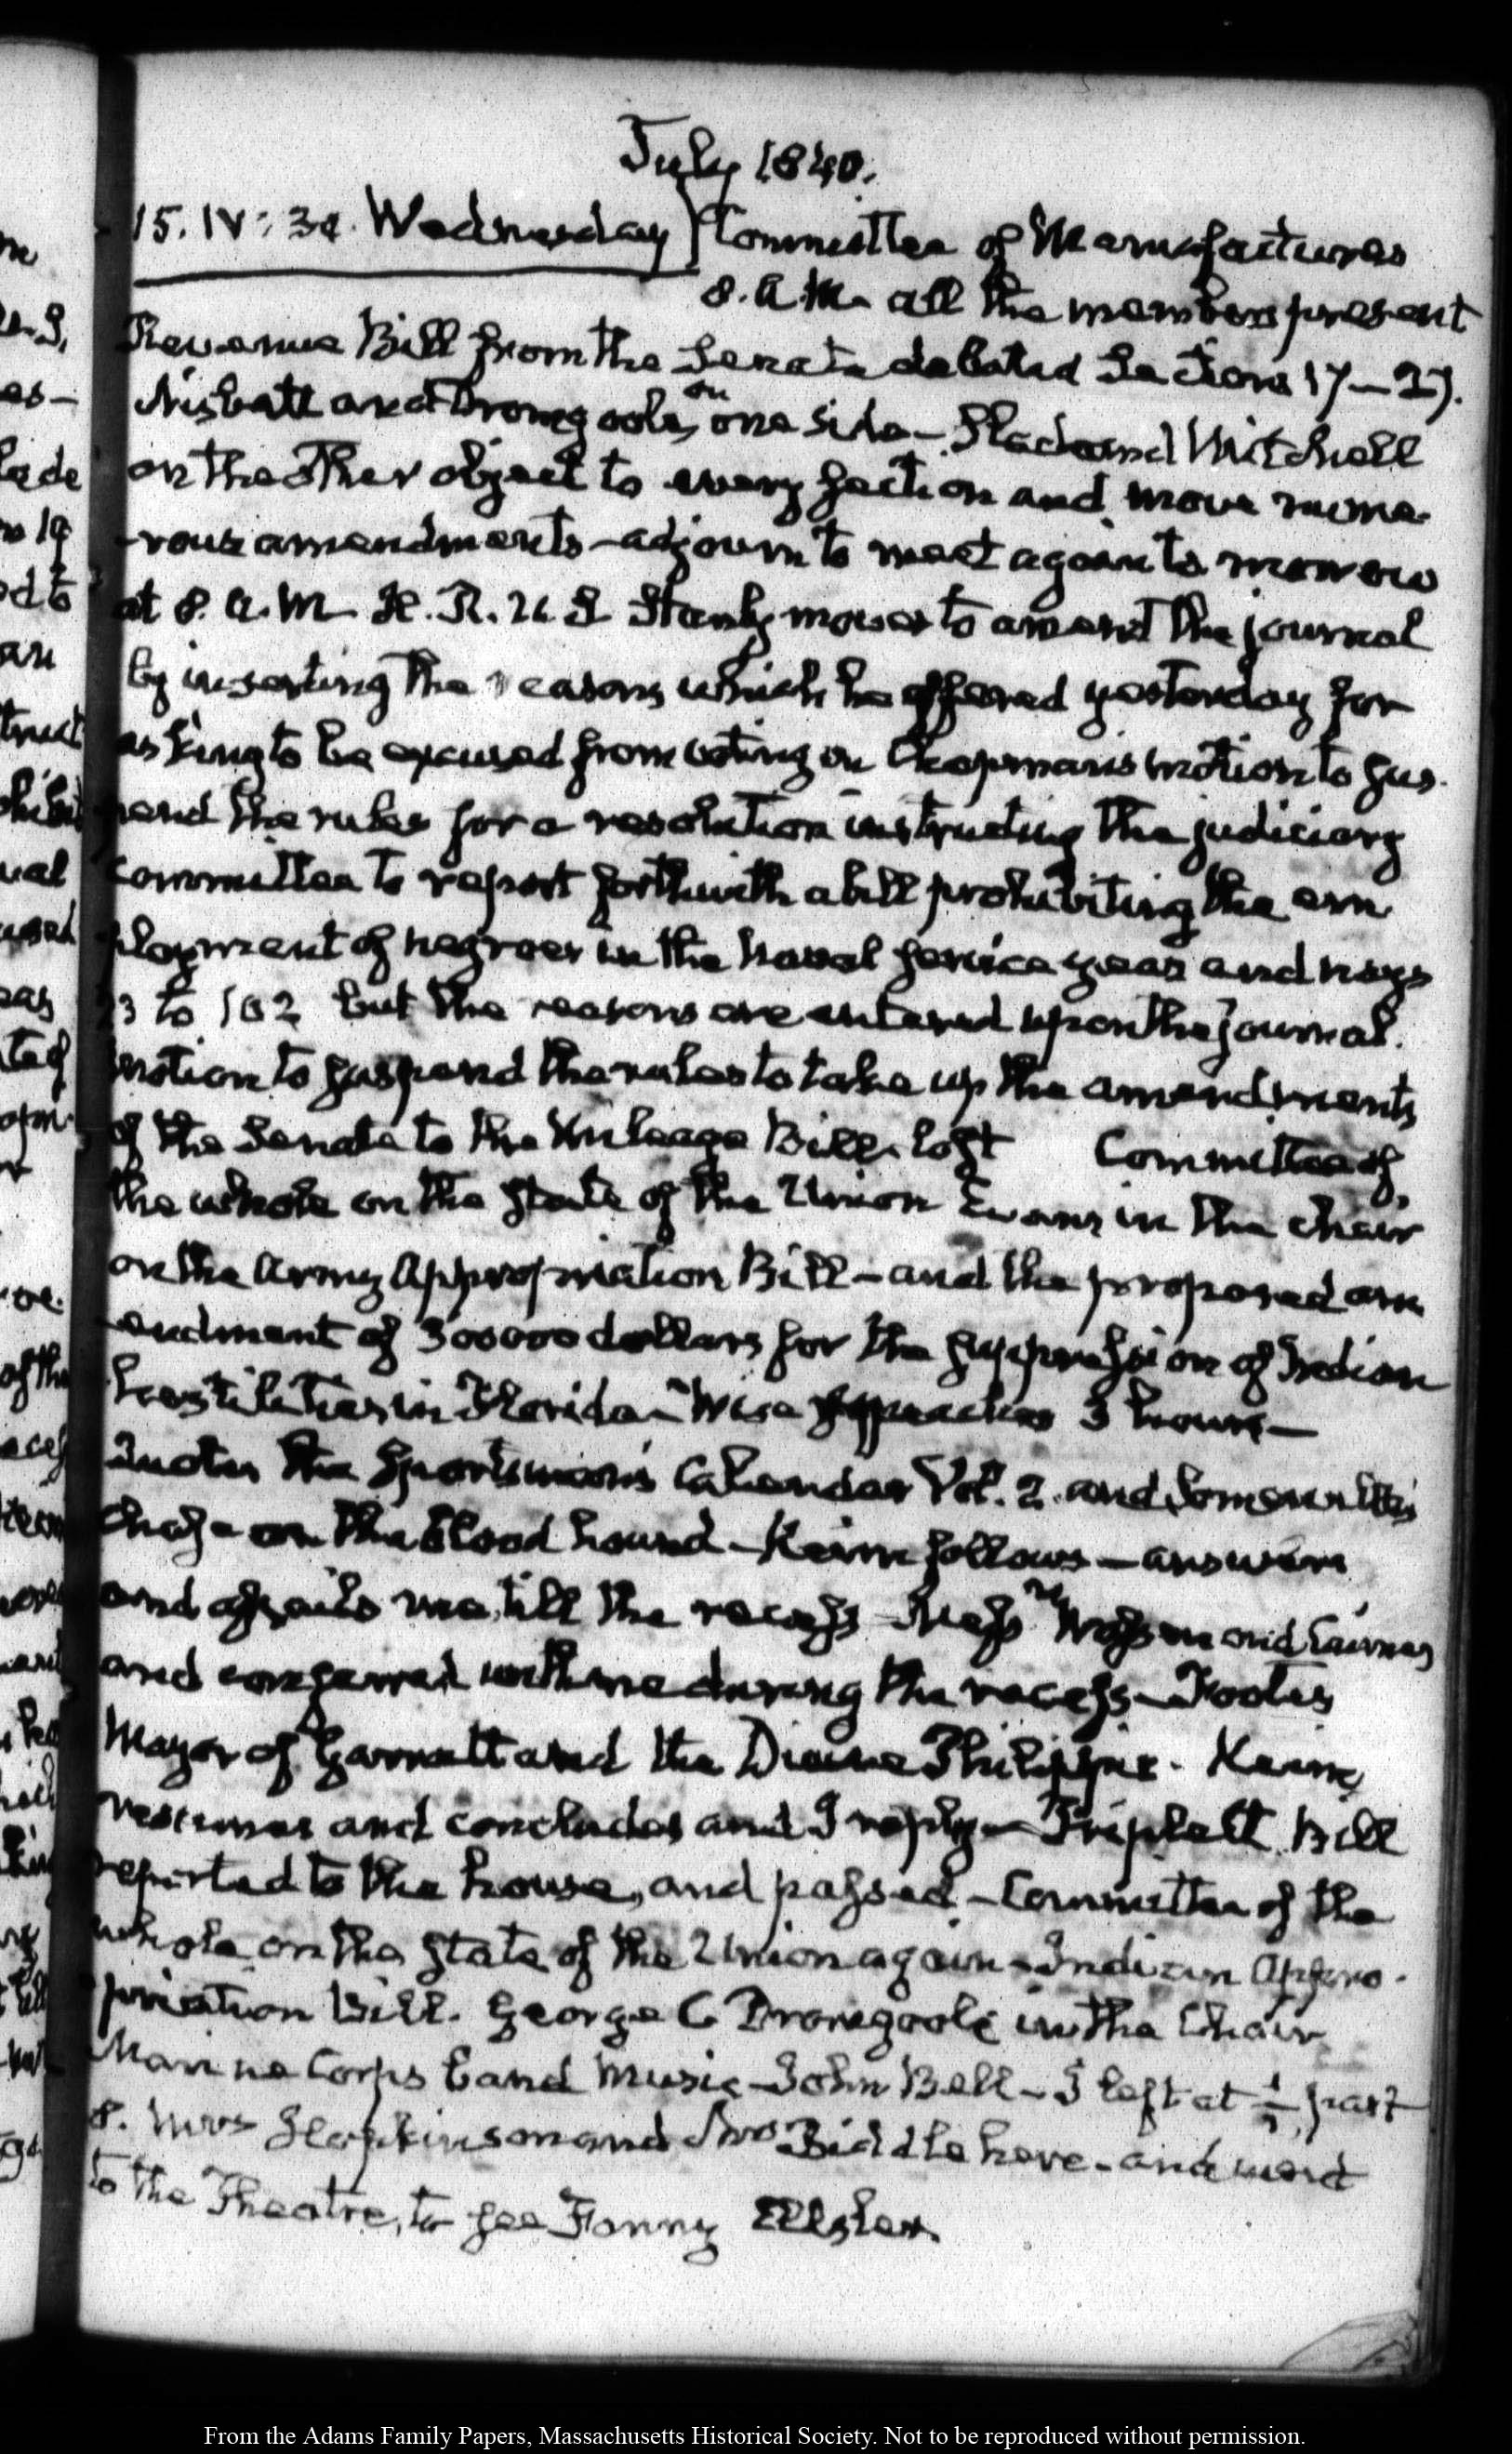 July 1840.
15. IV: 30. Wednesday Committee of Manufactures
8. A.M. all the members present
Revenue Bill from the Senate debated Sections 17–27.
Nisbett and Dromgoole, on one side – Slade and Mitchell
on the other object to every section and move nume-
-rous amendments – adjourn to meet again to morrow
at 8. A.M. H.R. U.S. Stanly moves to amend the journal
by inserting the reasons which he offered yesterday for
asking to be excused from voting on Chapman's motion to sus-
pend the rules for a resolution instructing the judiciary
committee to report forthwith a bill prohibiting the em
ployment of negroes in the naval service yeas and nays
to 102 but the reasons are entered upon the journal.
motion to suspend the rules to take up the amendments
of the Senate to the Mileage Bill. lost Committee of
the whole on the state of the Union Evans in the chair
on the Army Appropriation Bill – and the proposed am
-endment of 300000 dollars for the suppression of Indian
hostilities in Florida – Wise 3 hours –
Quotes the Sportsman's Calendar Vol. 2. and Somerville's
Chase on the blood hound – Keim follows – answers
and assails me, till the recess – Mess.rs and
and conversed with me during the recess – Foote's
Mayor of Garratt and the Divine Philippic. Keim
resumes and concludes and I reply – Triplett Bill
reported to the house, and passed – Committee of the
whole on the state of the Union again – Indian Appro-
priation Bill. George C Dromgoole in the Chair
Marine Corps band music – John Bell – I left at ½ past
8. Mrs Hopkinson and Mrs Biddle here – and went
to the Theatre, to see Fanny Elssler.
From the Adams Family Papers, Massachusetts Historical Society. Not to be reproduced without permission.